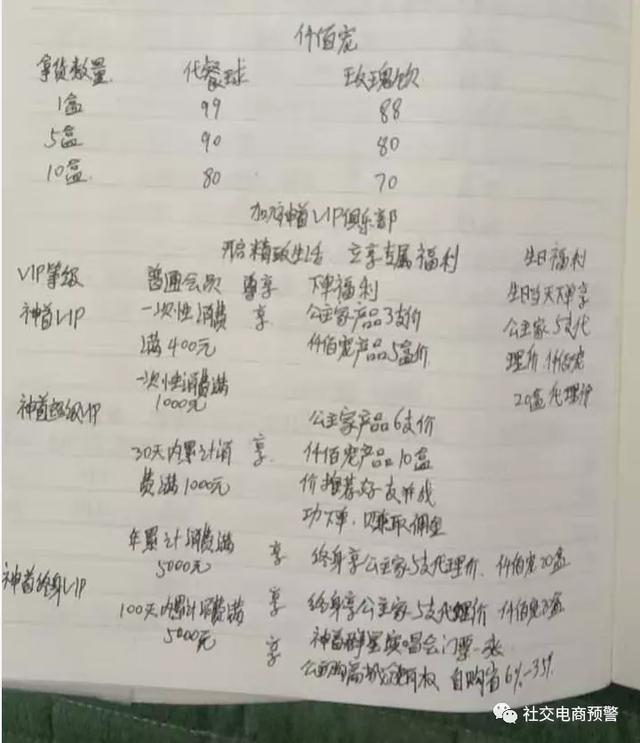 仟佰宠
拿货数量 代餐球 玫瑰饮
1盒 99 88
5盒 90 80
10盒 80 70
加入神首VIP俱乐部
开启精致生活 立享专属福利 生日福利
VIP等级 普通会员 尊享 下单福利 生日当天下单享
神首VIP 一次性消费 享 公主家产品3支价 公主家5支代
满400元 仟佰宠产品5盒价 理价 仟佰宠
一次性消费满 20盒代理价
神首超级VIP 1000元 公主家产品6支价
30天内累计消 享 仟佰宠产品10盒
费满1000元 价推荐好友并成
功下单,赚取佣金
年累计消费满 享 终身享公主家5支代理价、仟佰宠20盒
5000元
神首终身VIP
100天内累计消费满 享 终身享公主家5支代理价 仟佰宠20盒
5000元 享 神首群星演唱会门票一张
自购省6%-35%
社交电商预警